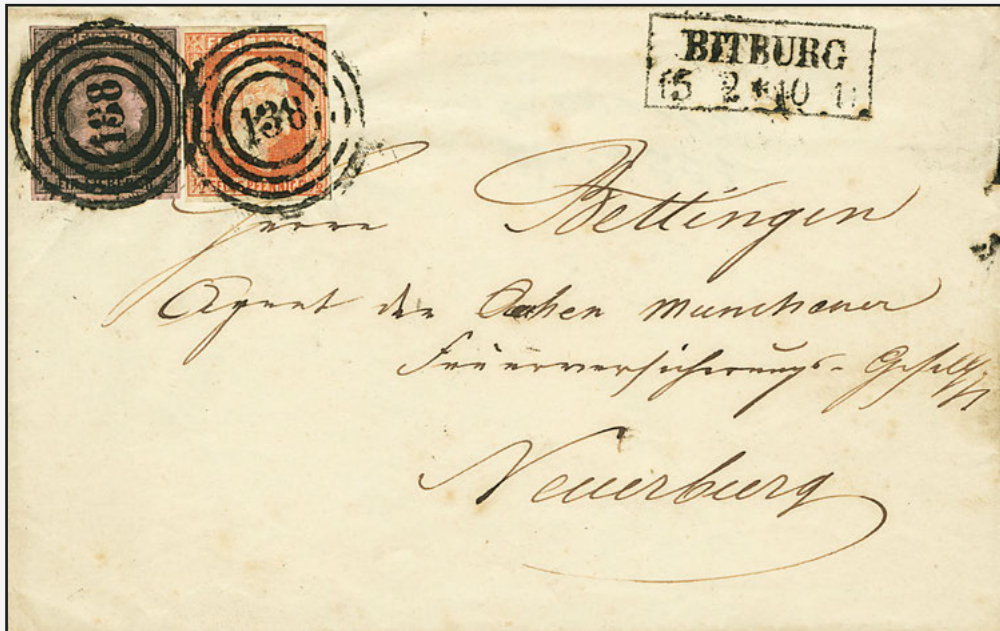 FREIMARKE
138
FREIMARKE
138
BITBURG
15 2 * 10 11
Herrn Bettingen
Agent der Aachen Munchener
Feuerversicherungs-Gesellsch
Neuerburg